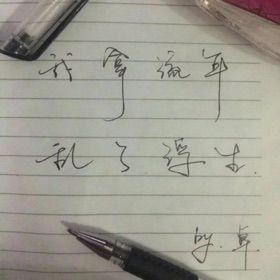 我拿流年
乱了浮生.
by.卓.